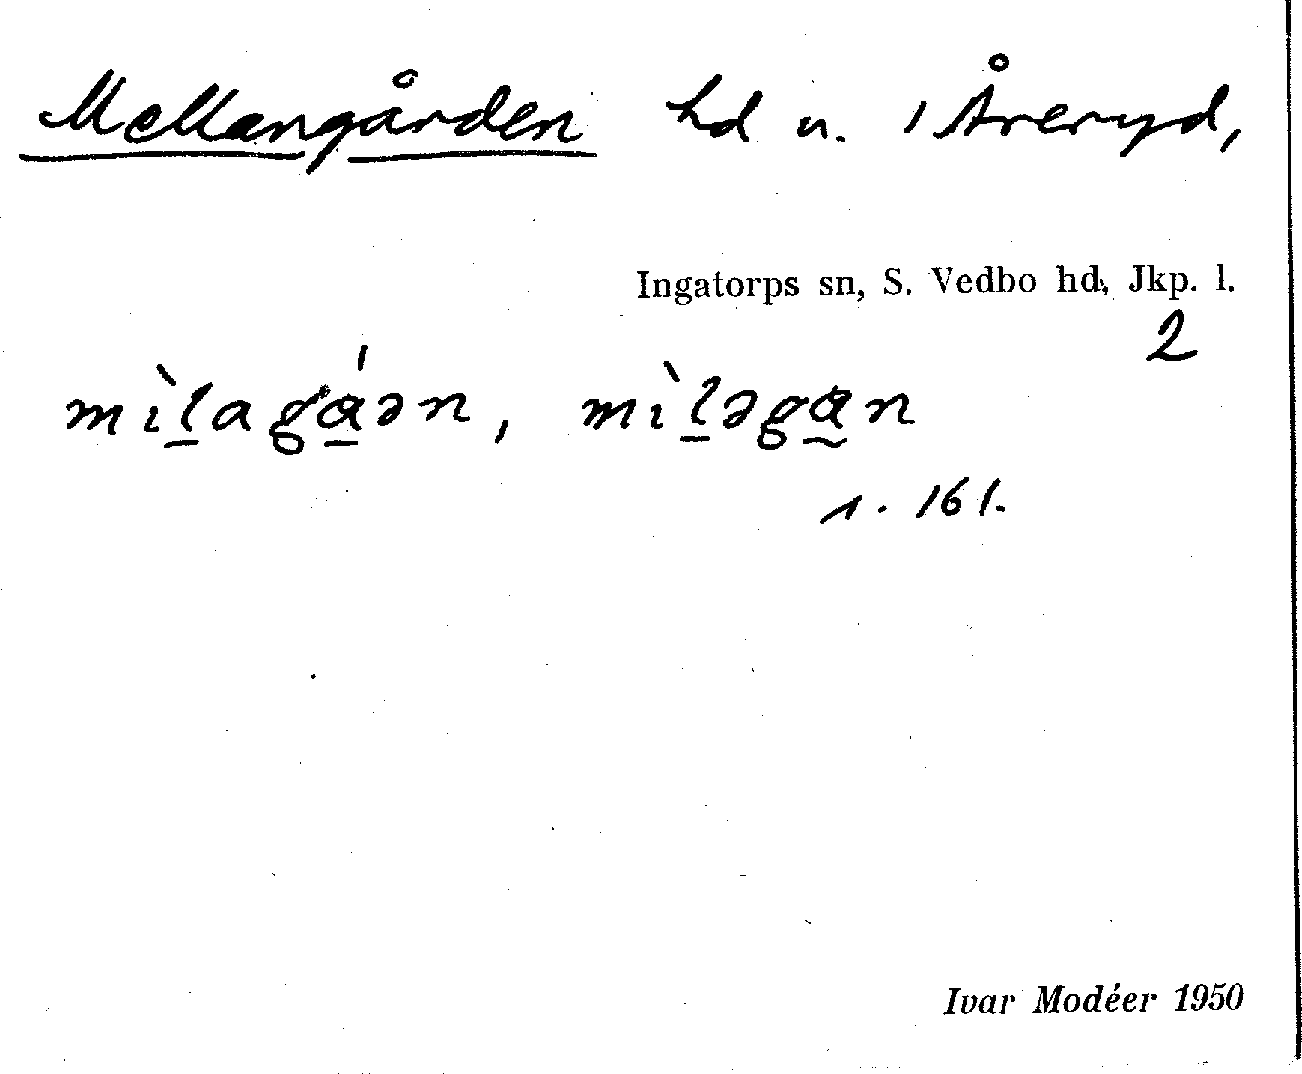 Mellangården hd n. i Åreryd,
Ingatorps sn, S. Vedbo hd, Jkp. l.
2
mìl̠agá̠ən, mìl̠əga̰n
s. 161.
Ivar Modéer 1950